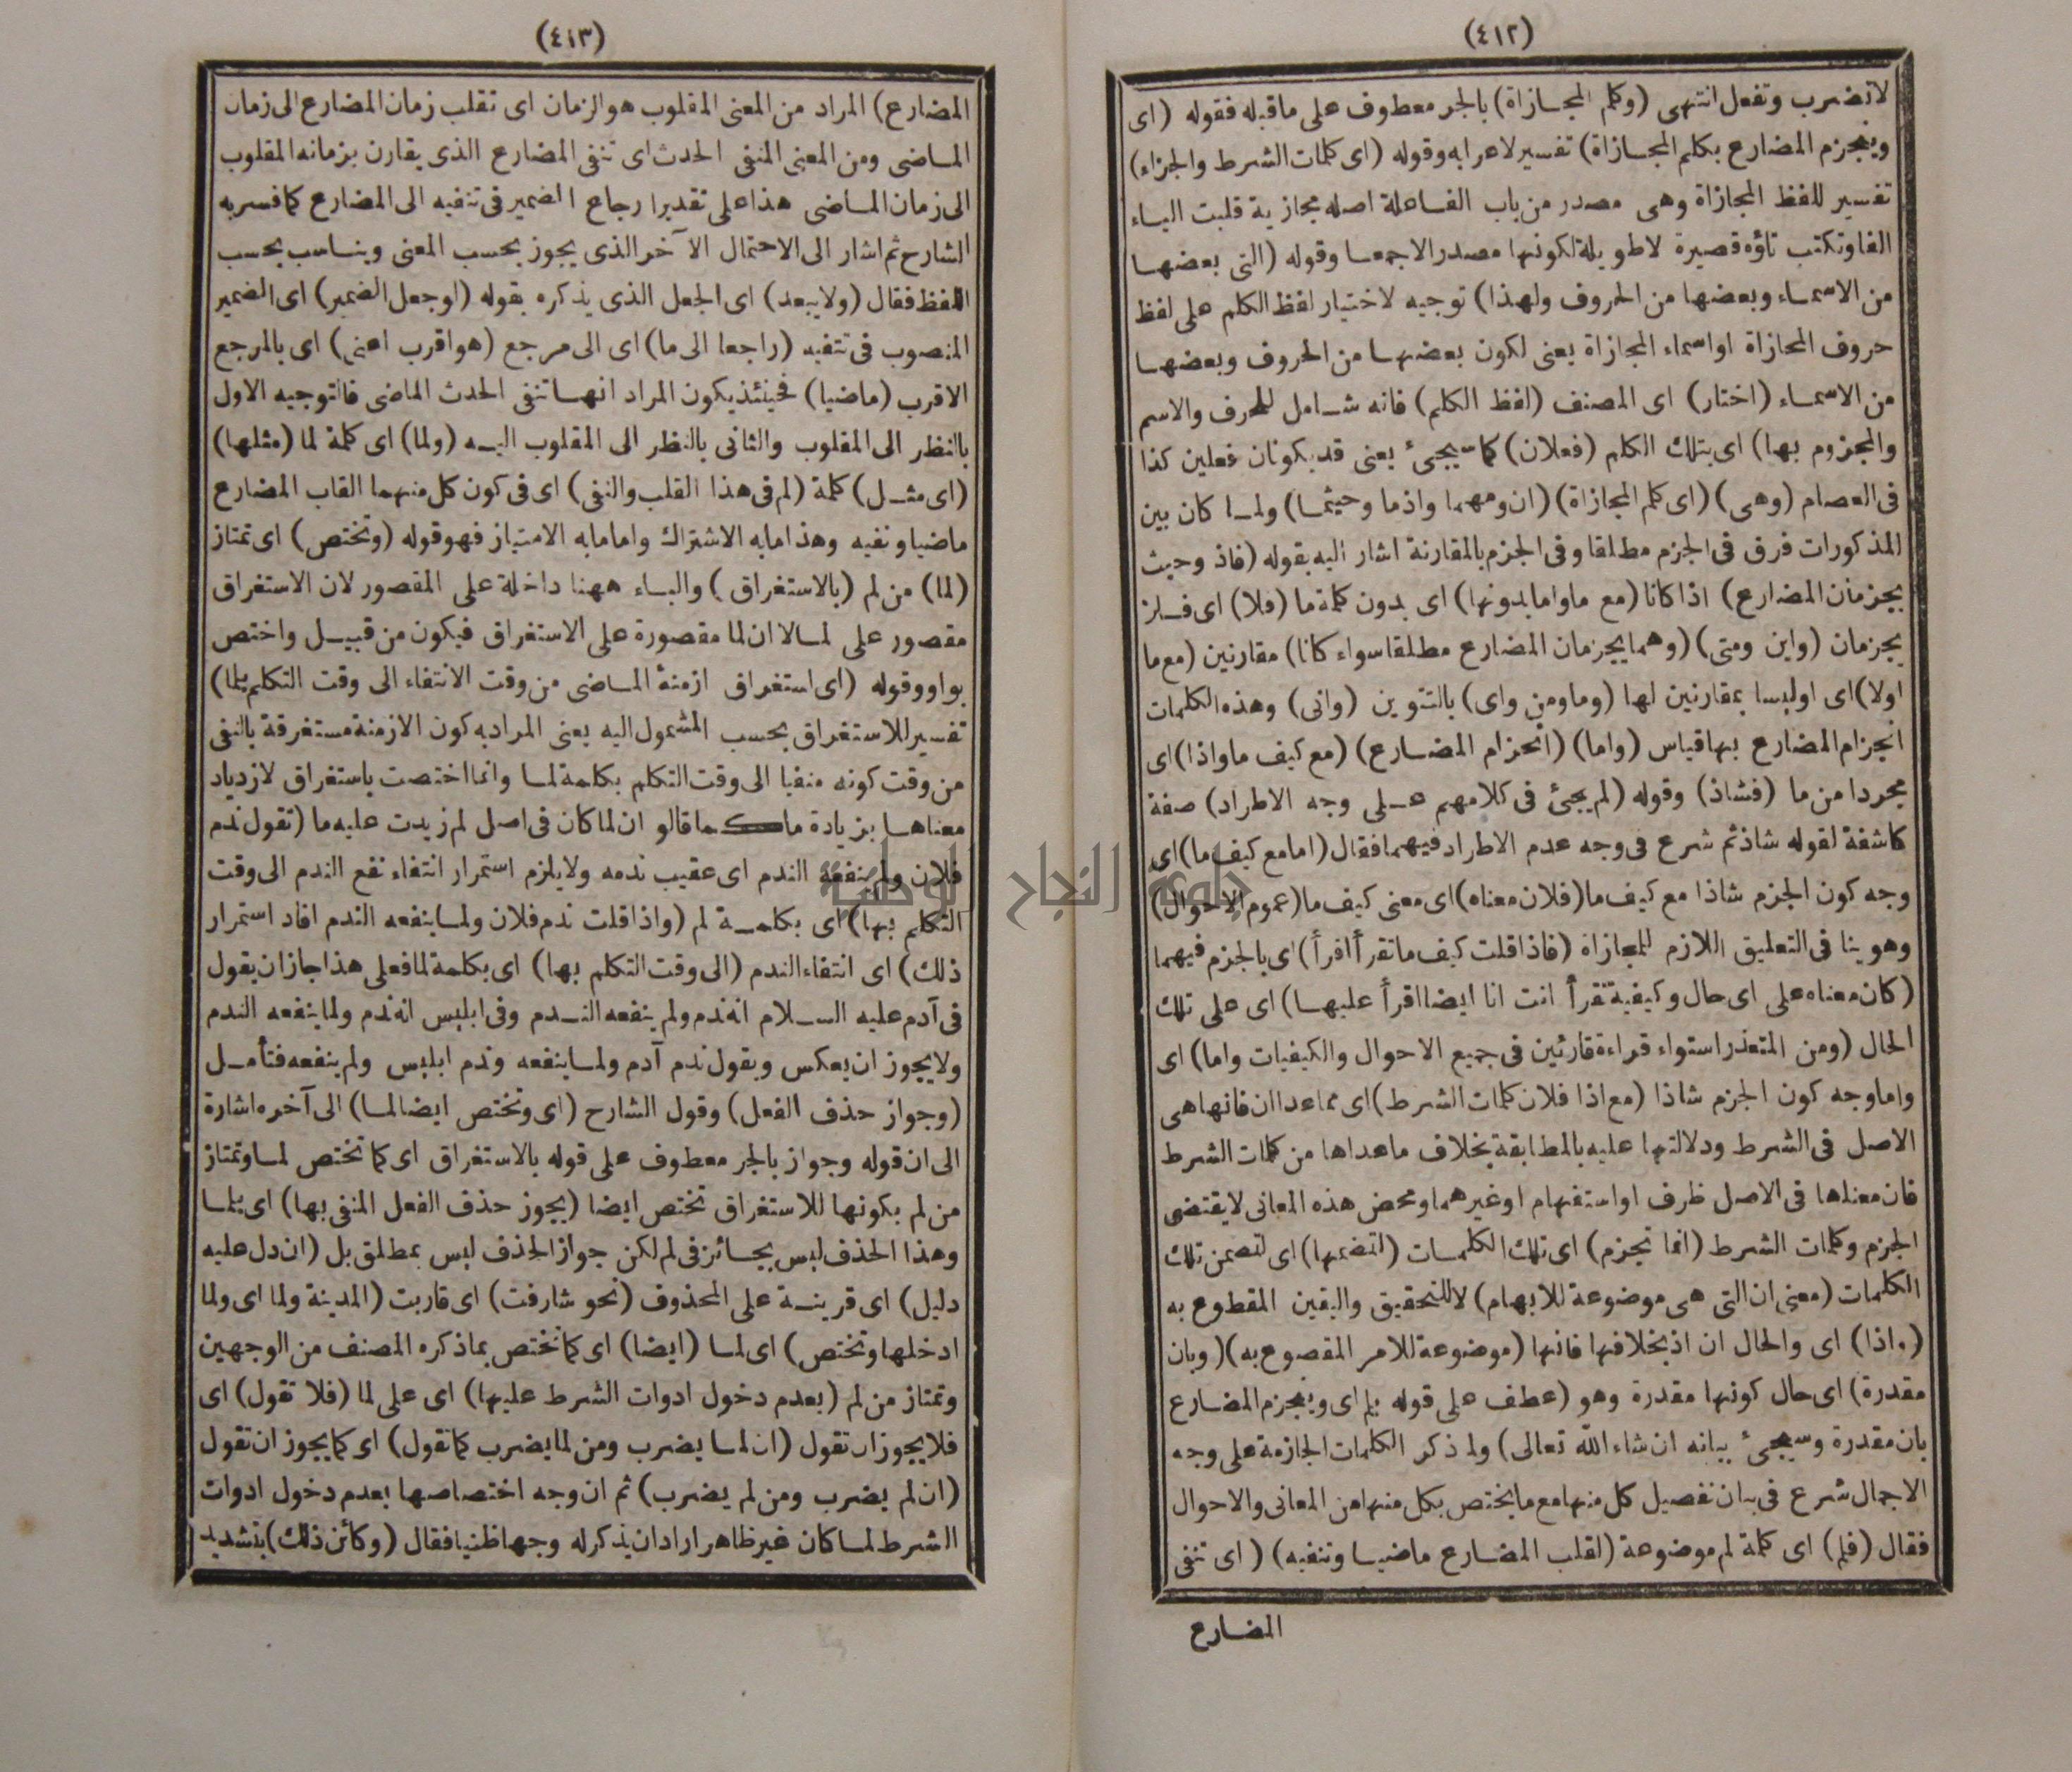 (٤١٢)
لا تضرب وتفعل انتهى (وكلم المجازاة) بالجر معطوف على ما قبله فقوله (اى
وينجزم المضارع بكلم المجازاة) تفسير لاعرابه وقوله (اى كلمات الشرط والجزاء)
تفسير للفظ المجازاة وهى مصدر من باب المفاعلة اصله مجازية قلبت الياء
الفا وتكتب تاؤه قصيرة لا طويلة لكونها مصدرا لا جمعا وقوله (التى بعضها
من الاسماء وبعضها من الحروف ولهذا) توجيه لاختيار لفظ الكلم على لفظ
حروف المجازاة او اسماء المجازاة يعنى لكون بعضها من الحروف وبعضها
من الاسماء (اختار) اى المصنف (لفظ الكلم) فانه شامل للحرف والاسم
والمجزوم بها) اى بتلك الكلم (فعلان) كما سيجىء يعنى قد يكونان فعلين كذا
فى العصام (وهى) (اى كلم المجازاة) (ان ومهما واذما وحيثما) ولما كان بين
المذكورات فرق فى الجزم مطلقا وفى الجزم بالمقارنة اشار اليه بقوله (فاذ وحيث
يجزمان المضارع) اذا كانا (مع ما واما بدونها) اى بدون كلمة ما (فلا) اى فلا
يجزمان (واين ومتى) (وهما يجزمان المضارع مطلقا سواء كانا) مقارنين (مع ما
اولا) اى اوليسا بمقارنين لها (وما ومن واى) بالتنوين (وانى) وهذه الكلمات
انجزام المضارع بها قياس (واما) (انجزام المضارع) (مع كيف ما واذا) اى
مجردا من ما (فشاذ) وقوله (لم يجئ فى كلامهم على وجه الاطراد) صفة
كاشفة لقوله شاذ ثم شرع فى وجه عدم الاطراد فيهما فقال (اما مع كيف ما) اى
وجه كون الجزم شاذا مع كيف ما (فلان معناه) اى معنى كيف ما (عموم الاحوال)
وهو ينافى التعليق اللازم للمجازاة (فاذا قلت كيف ما تقرأ اقرأ) اى بالجزم فيهما
(كان معناه على اى حال وكيفية تقرأ انت انا ايضا اقرأ عليها) اى على تلك
الحال (ومن المتعذر استواء قراءة قارئين فى جميع الاحوال والكيفيات واما) اى
واما وجه كون الجزم شاذا (مع اذا فلان كلمات الشرط) اى مما عدا ان فانها هى
الاصل فى الشرط ودلالتها عليه بالمطابقة بخلاف ما عداها من كلمات الشرط
فان معناها فى الاصل ظرف او استفهام او غيرهما ومحض هذه المعانى لا يقتضى
الجزم وكلمات الشرط (انما تجزم) اى تلك الكلمات (لتضمنها) اى لتضمن تلك
الكلمات (معنى ان التى هى موضوعة للابهام) لا للتحقيق واليقين المقطوع به
(واذا) اى والحال ان اذ بخلافها فانها (موضوعة للامر المقصوع به) (وبان
مقدرة) اى حال كونها مقدرة وهو (عطف على قوله بلم اى وينجزم المضارع
بان مقدرة وسيجىء بيانه ان شاء الله تعالى) ولما ذكر الكلمات الجازمة على وجه
الاجمال شرع فى بيان تفصيل كل منها مع ما يختص بكل منها من المعانى والاحوال
فقال (فلم) اى كلمة لم موضوعة (لقلب المضارع ماضيا ونفيه) (اى تنفى
المضارع
(٤١٣)
المضارع) المراد من المعنى المقلوب هو الزمان اى تقلب زمان المضارع الى زمان
الماضى ومن المعنى المنفى الحدث اى تنفى المضارع الذى يقارن بزمانه المقلوب
الى زمان الماضى هذا على تقدير ارجاع الضمير فى تنفيه الى المضارع كما فسر به
الشارح ثم اشار الى الاحتمال الآخر الذى يجوز بحسب المعنى ويناسب بحسب
اللفظ فقال (ولا يبعد) اى الجعل الذى يذكره بقوله (لو جعل الضمير) اى الضمير
المنصوب فى تنفيه (راجعا الى ما) اى الى مرجع (هو اقرب اعنى) اى بالمرجع
الاقرب (ماضيا) فحينئذ يكون المراد انها تنفى الحدث الماضى فالتوجيه الاول
بالنظر الى المقلوب والثانى بالنظر الى المقلوب اليه (ولما) اى كلمة لما (مثلها)
(اى مثل) كلمة (لم فى هذا القلب والنفى) اى فى كون كل منهما القاب المضارع
ماضيا ونفيه وهذا ما به الاشتراك واما ما به الامتياز فهو قوله (وتختص) اى تمتاز
(لما) من لم (بالاستغراق) والباء ههنا داخلة على المقصور لان الاستغراق
مقصور على لما لا ان لما مقصورة على الاستغراق فيكون من قبيل واختص
بواو وقوله (اى استغراق ازمنة الماضى من وقت الانتفاء الى وقت التكلم بلما)
تفسير للاستغراق بحسب المشمول اليه يعنى المراد به كون الازمنة مستغرقة بالنفى
من وقت كونه منفيا الى وقت التكلم بكلمة لما وانما اختصت باستغراق لازدياد
معناها بزيادة ما كما قالوا ان لما كان فى اصل لم زيدت عليه ما (تقول ندم
فلان ولم ينفعه الندم اى عقيب ندمه ولا يلزم استمرار انتفاء نفع الندم الى وقت
التكلم بها) اى بكلمة لم (واذا قلت ندم فلان ولما ينفعه الندم افاد استمرار
ذلك) اى انتفاء الندم (الى وقت التكلم بها) اى بكلمة لما فعلى هذا جاز ان يقول
فى آدم عليه السلام انه ندم ولم ينفعه الندم وفى ابليس انه ندم ولما ينفعه الندم
ولا يجوز ان يعكس ويقول ندم آدم ولما ينفعه وندم ابليس ولم ينفعه فتأمل
(وجواز حذف الفعل) وقول الشارح (اى وتختص ايضا لما) الى آخره اشارة
الى ان قوله وجواز بالجر معطوف على قوله بالاستغراق اى كما تختص لما وتمتاز
من لم بكونها للاستغراق تختص ايضا (بجواز حذف الفعل المنفى بها) اى بلما
وهذا الحذف ليس بجائز فى لم لكن جواز الحذف ليس بمطلق بل (ان دل عليه
دليل) اى قرينة على المحذوف (نحو شارفت) اى قاربت (المدينة ولما اى ولما
ادخلها وتختص) اى لما (ايضا) اى كما تختص بما ذكره المصنف من الوجهين
وتمتاز من لم (بعدم دخول ادوات الشرط عليها) اى على لما (فلا تقول) اى
فلا يجوز ان تقول (ان لما يضرب ومن لما يضرب كما تقول) اى كما يجوز ان تقول
(ان لم يضرب ومن لم يضرب) ثم ان وجه اختصاصها بعدم دخول ادوات
الشرط لما كان غير ظاهر اراد ان يذكر له وجها ظنيا فقال (وكأن ذلك) بتشديد
جامعة النجاح الوطنية